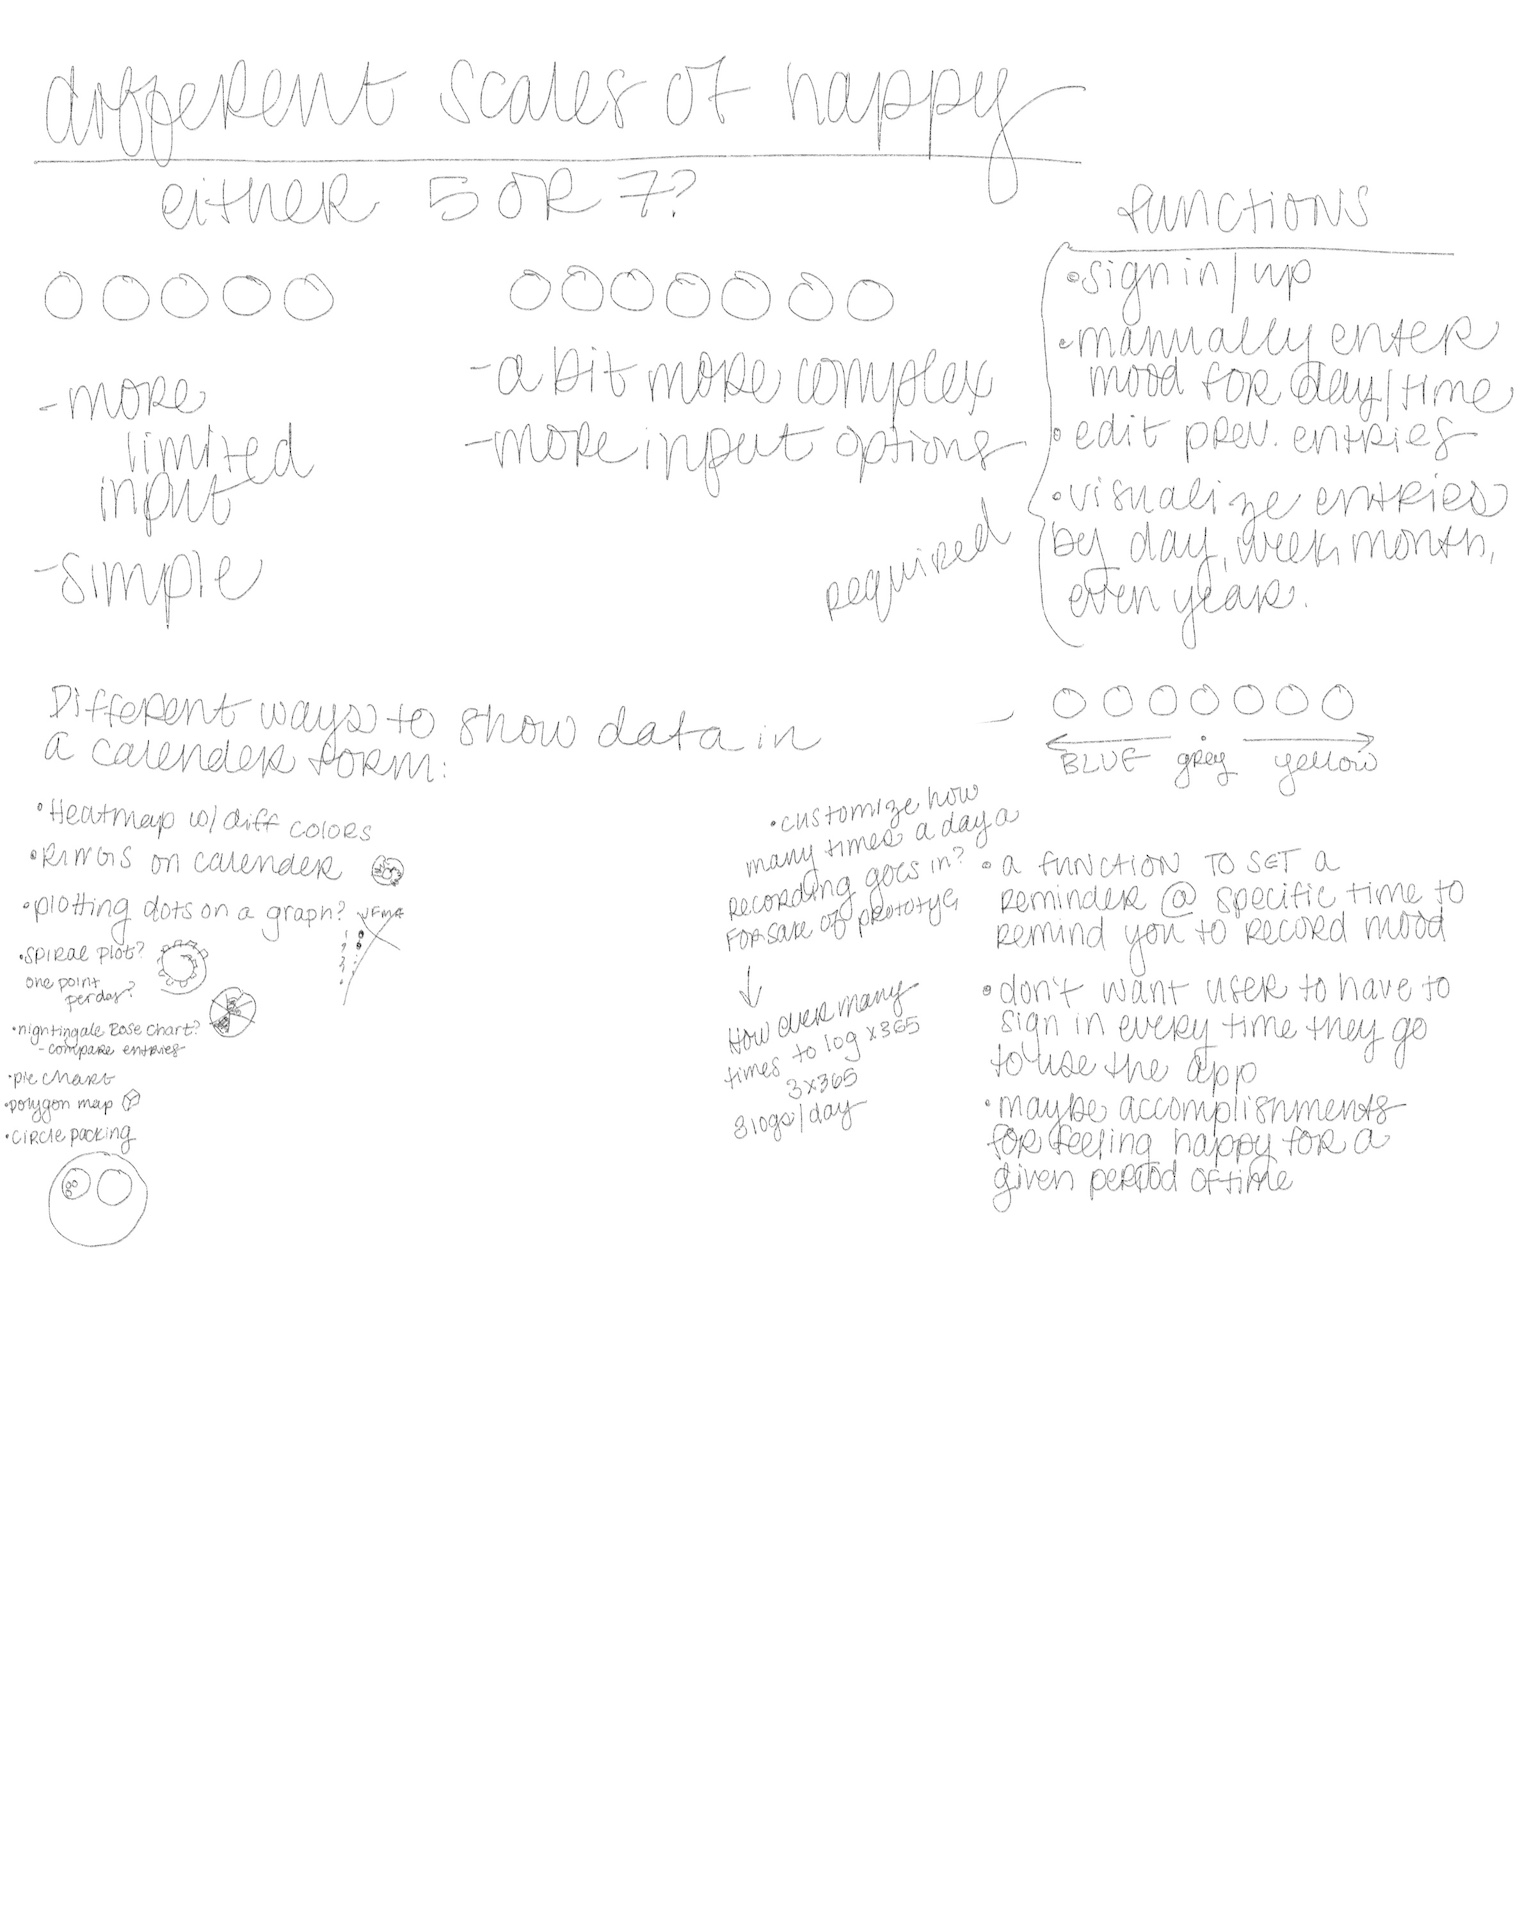 different scales of happy
either 5 OR 7?
-more
limited
input
-simple
-a bit more complex
-more input options
functions
•sign in/up
•manually enter
mood for day/time
•edit prev. entries
•visualize entries
by day, week, month,
even year.
required
BLUE grey yellow
Different ways to show data in
a calender form:
•Heatmap w/ diff colors
•RINGS on calender
•plotting dots on a graph?
JFMA
•spiral plot?
one point
per day?
•nightingale Rose chart?
-compare entries
•pie chart
•polygon map
•circle packing
•customize how
many times a day a
recording goes in?
for sake of prototype
How ever many
times to log x365
3x365
3logs/day
•a function to set a
reminder @ specific time to
remind you to record mood
•don't want user to have to
sign in every time they go
to use the app
•maybe accomplishments
for feeling happy for a
given period of time